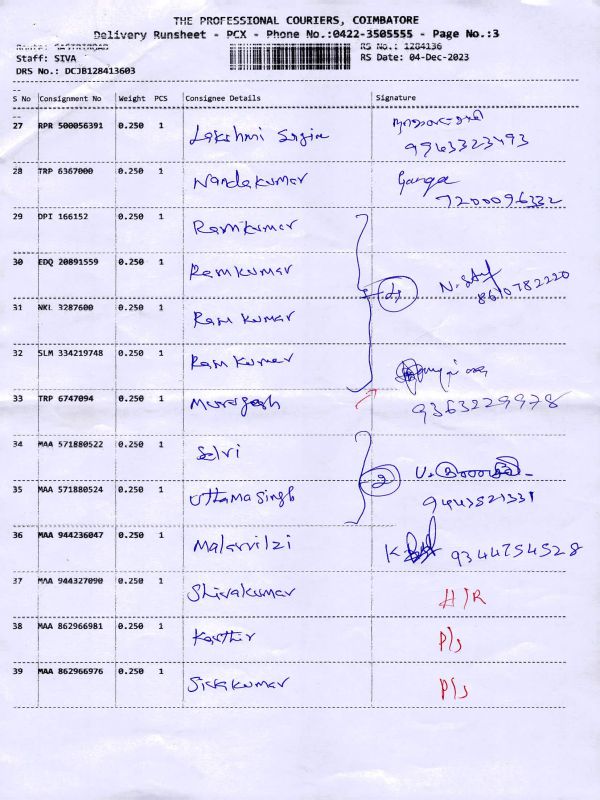 THE PROFESSIONAL COURIERS, COIMBATORE
Delivery Runsheet - PCX - Phone No.:0422-3505555 - Page No.:3
RS No.: 1284136
Staff: SIVA RS Date: 04-Dec-2023
DRS No.: DCJB128413603
S No Consignment No Weight PCS Consignee Details Signature
27 RPR 500056391 0.250 1 Lakshmi
9963323493
28 TRP 6367000 0.250 1 Nandakumar Ganga
7200096332
29 DPI 166152 0.250 1 Ramkumar
30 EDQ 20891559 0.250 1 Ramkumar
8610782220
31 NKL 3287600 0.250 1 Ram kumar
32 SLM 334219748 0.250 1 Ram kumar
33 TRP 6747094 0.250 1 Murugesh 9363229978
34 MAA 571880522 0.250 1 Selvi
35 MAA 571880524 0.250 1 Uthama Singh 2
9443521331
36 MAA 944236047 0.250 1 Malarvilzi 9344754528
37 MAA 944327090 0.250 1 Shivakumar H/R
38 MAA 862966981 0.250 1 Karthi P/s
39 MAA 862966976 0.250 1 Sivakumar P/s